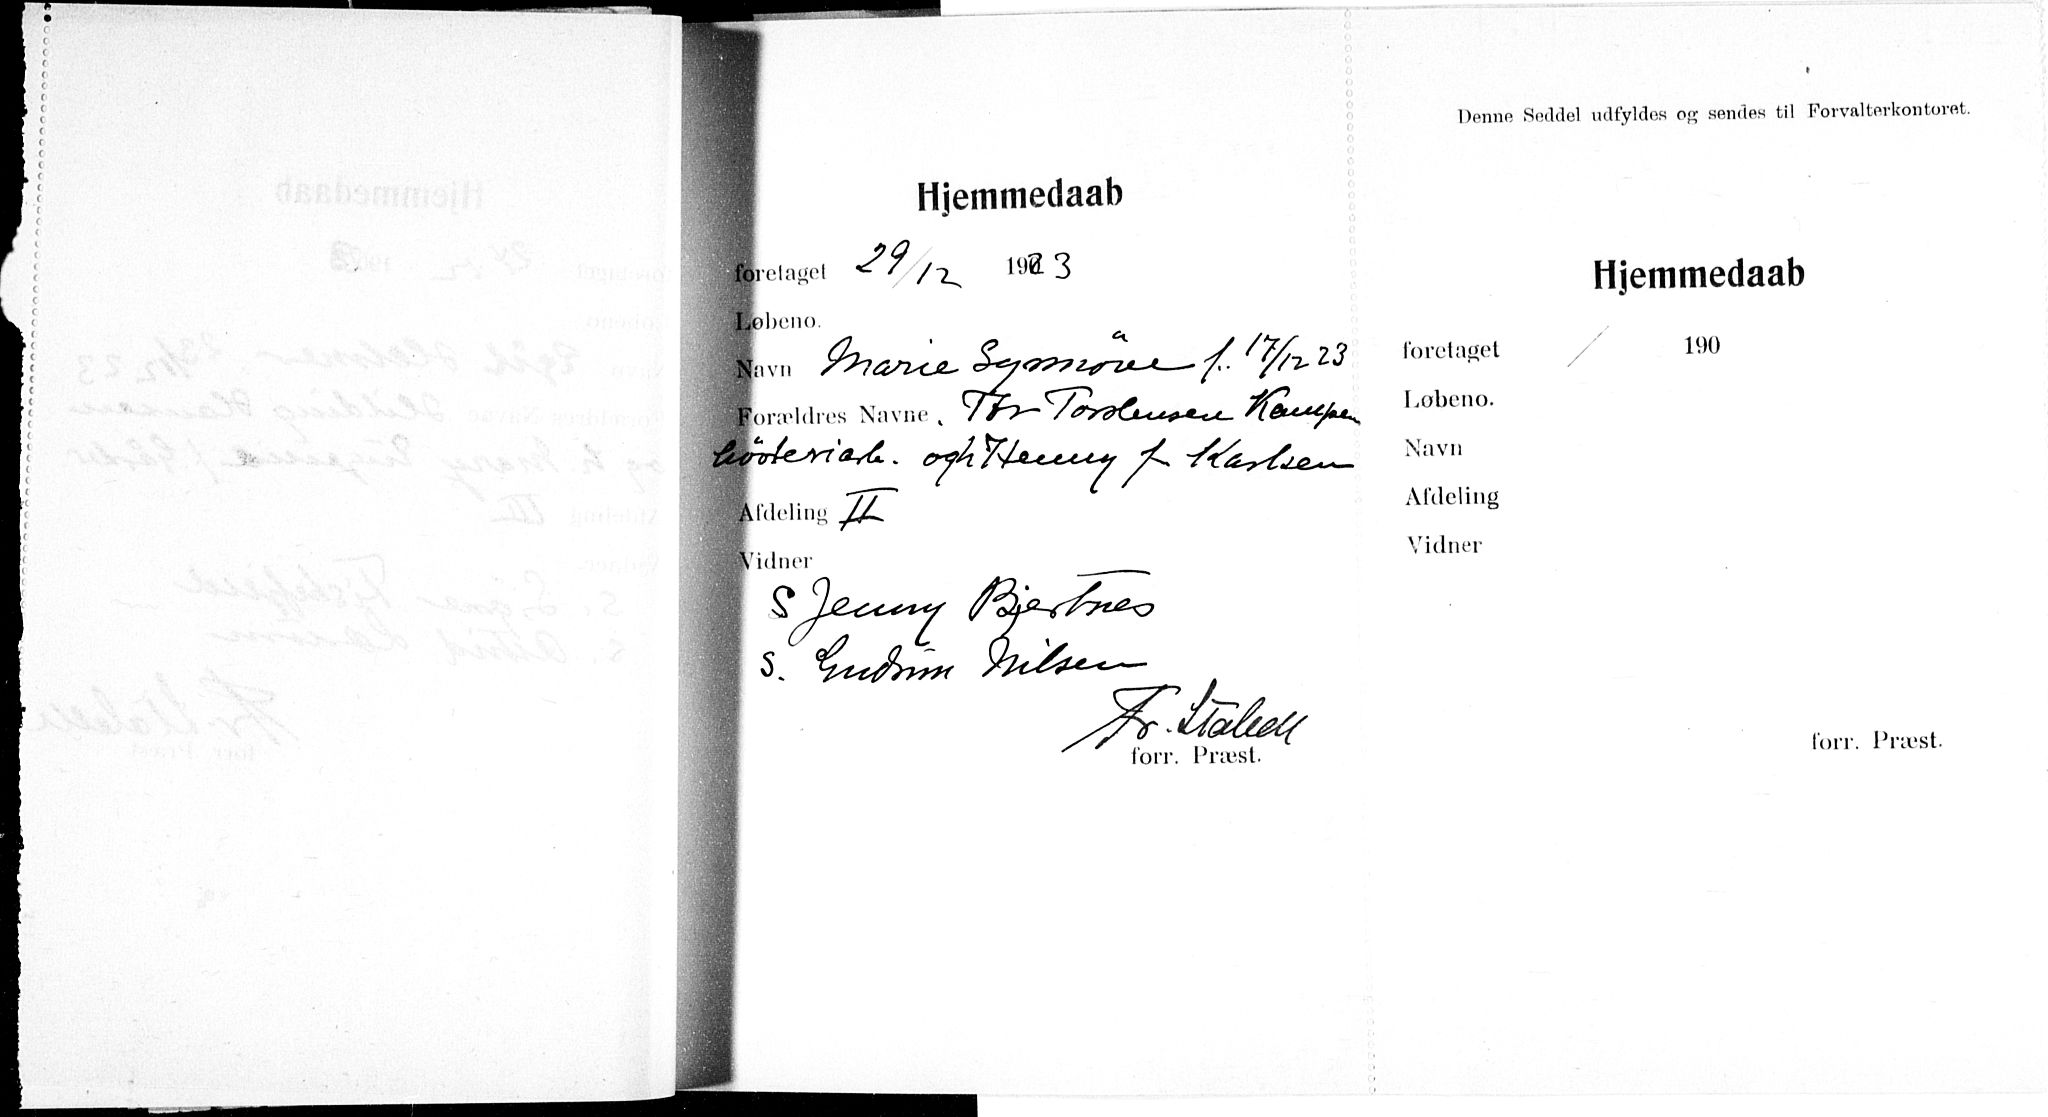 Hjemmedaab
foretaget 29/12 1923
Løbeno.
Navn Marie Synnöve f. 17/12 23
Forældres Navne. Thr Torstensen Kampen
og h Henny f Karlsen
Afdeling II
Vidner
S Jenny Bjertnes
S. Gudrun Nilsen
Fr. Stabell
forr. Præst.
Denne Seddel udfyldes og sendes til Forvalterkontoret.
Hjemmedaab
foretaget / 190
Løbeno.
Navn
Afdeling
Vidner
forr. Præst.